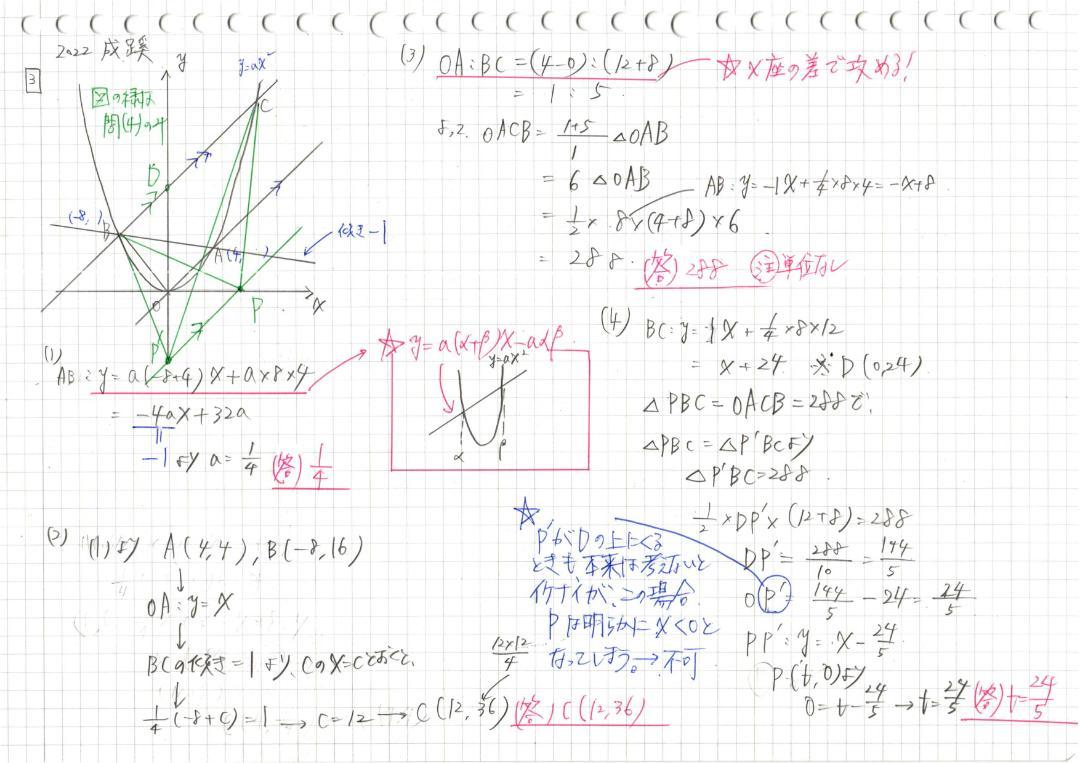 2022 成蹊
3
図の緑は
問(4)のみ
y
y=ax²
C
D
(-8, )
B
A(4, )
傾き-1
O
P
x
P'
(1)
AB:y=a(-8+4)x+a×8×4
=-4ax+32a
-1よりa=1/4 (答)1/4
☆y=a(α+β)x-aαβ
y=ax²
α β
(2) (1)より A(4,4), B(-8,16)
↓
OA:y=x
↓
BCの傾き=1より、Cのx=cとおくと、
↓
1/4(-8+c)=1→c=12→C(12,36) (答)C(12,36)
12×12/4
(3) OA:BC=(4-0):(12+8) ☆x座の差で攻める!
=1:5
よって OACB=1+5/1 △OAB
=6△OAB
AB:y=-1x+1/4×8×4=-x+8
=1/2×8×(4+8)×6
=288. (答)288 (注)単位なし
(4) BC:y=1x+1/4×8×12
=x+24 ※D(0,24)
△PBC=OACB=288で、
△PBC=△P'BCより
△P'BC=288
1/2×DP'×(12+8)=288
DP'=288/10=144/5
OP'=144/5-24=24/5
PP':y=x-24/5
P(t,0)より
0=t-24/5→t=24/5 (答)t=24/5
☆
P'がDの上にくる
ときも本来は考えないと
イケナイが、この場合
Pは明らかにx<0と
なってしまう。→不可